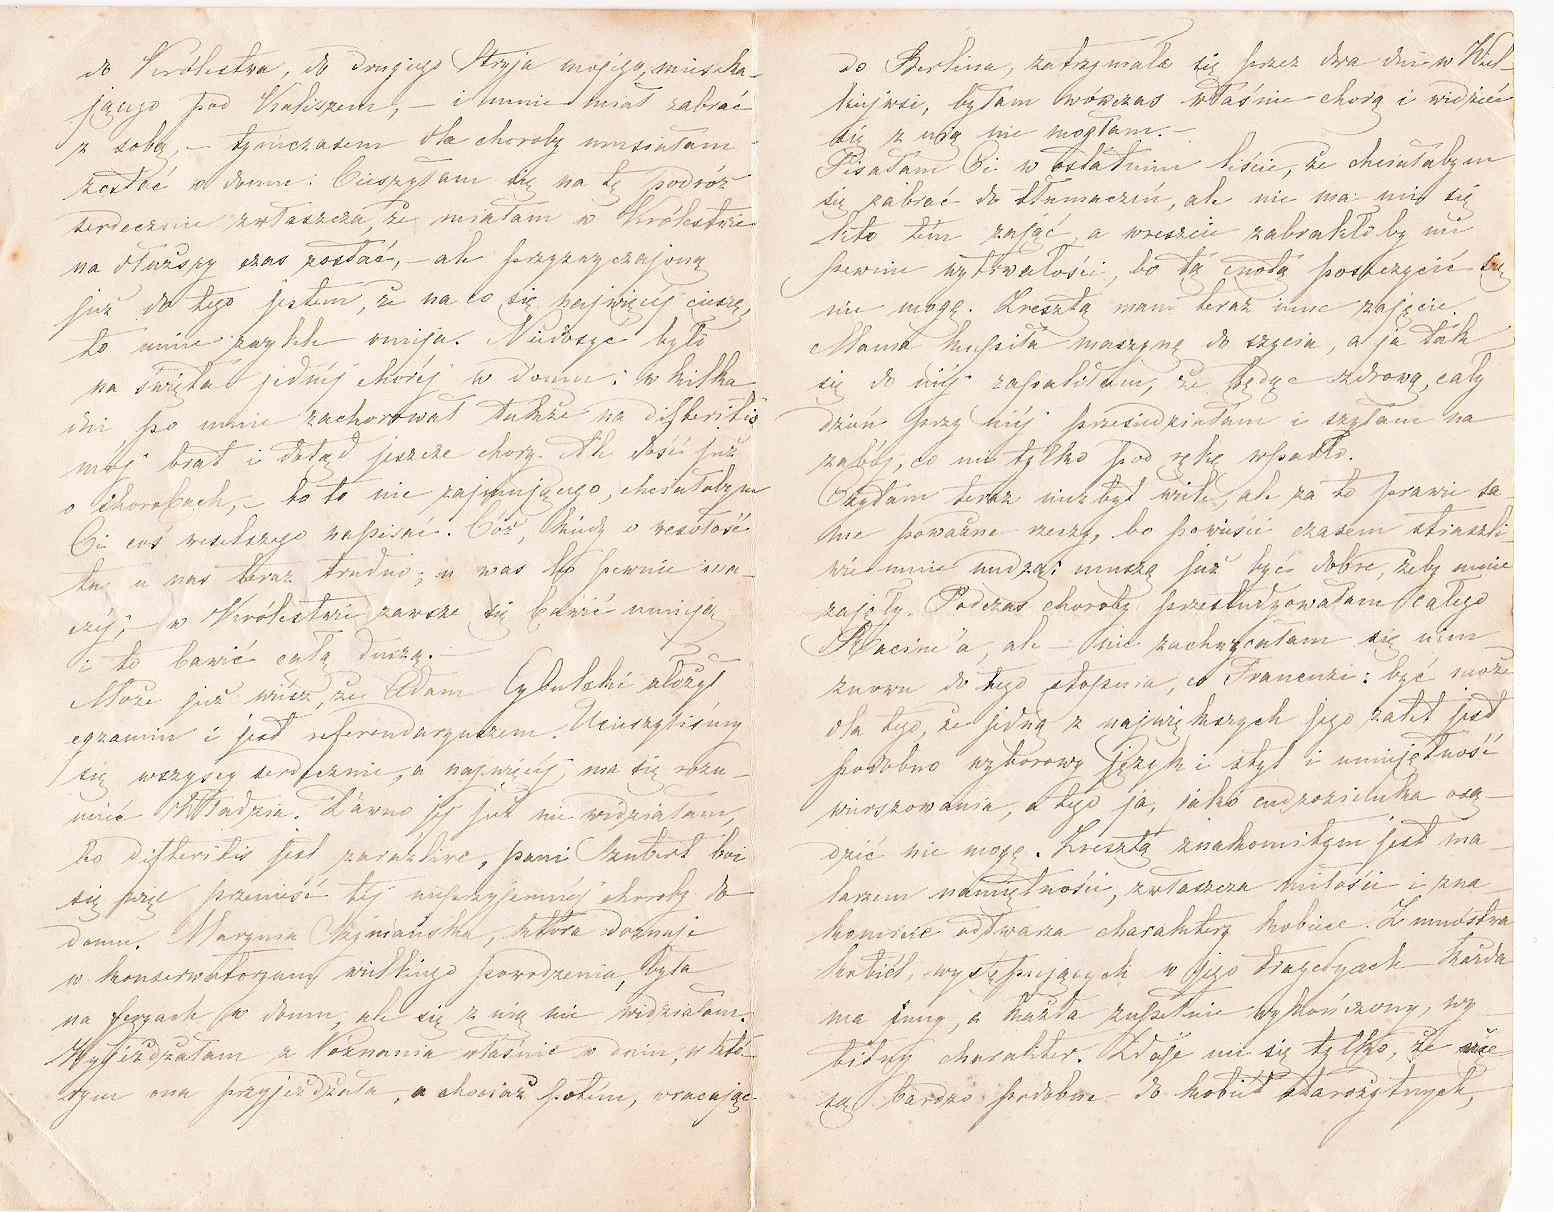 do Królestwa, do drugiego Stryja mojego, mieszka-
jącego pod Kaliszem, – i mnie miał zabrać
z sobą, – tymczasem dla choroby musiałam
zostać w domu. Cieszyłam się na tę podróż
serdecznie zwłaszcza, że miałam w Królestwie
na dłuższy czas zostać, – ale przyzwyczajoną
już do tego jestem, że na co się najwięcej cieszę,
to mnie zwykle omija. Niedosyć było
na święta jednéj choréj w domu; w kilka
dni po mnie zachorował także na difteritis
mój brat i dotąd jeszcze chory. Ale dość już
o chorobach, – bo to nic zajmującego, chciałabym
Ci coś weselszego napisać. Cóż, kiedy o wesołość
tu u nas teraz trudno; u was to pewnie ina-
czéj; – w Królestwie zawsze się bawić umieją
i to bawić całą duszą. –
Może już wiesz, że Adam Cybulski złożył
egzamin i jest referendaryuszem. Ucieszyliśmy
się wszyscy serdecznie, a najwięcéj, ma się rozu-
mieć Władzia. Dawno jéj już nie widziałam,
bo difteritis jest zaraźliwe, pani Szubert boi
się więc przenieść téj nieprzyjemnéj choroby do
domu. Marynia Szymańska, która doznaje
w konserwatoryum wielkiego powodzenia, była
na feryach w domu, ale się z nią nie widziałam.
Wyjeżdżałam z Poznania właśnie w dniu, w któ-
rym ona przyjeżdżała, a chociaż potém, wracając
do Berlina, zatrzymała się przez dwa dni w Wiel-
kiejwsi, byłam wówczas właśnie chorą i widzieć
się z nią nie mogłam. –
Pisałam Ci w ostatnim liście, że chciałabym
się zabrać do tłumaczeń, ale nie ma mi się
kto tém zająć, a wreszcie zabrakłoby mi
pewnie wytrwałości, bo tą cnotą poszczycić się
nie mogę. Zresztą mam teraz inne zajęcie.
Mama kupiła maszynę do szycia, a ja tak
się do niéj zapaliłam, że będąc zdrową, cały
dzień przy niéj przesiedziałam i szyłam na
zabój, co mi tylko pod rękę wpadło.
Czytam teraz niezbyt wiele, ale za to prawie sa-
me poważne rzeczy, bo powieści czasem straszli-
wie mnie nudzą; muszą już być dobre, żeby mnie
zajęły. Podczas choroby przestudyowałam całego
Racine'a, ale – nie zachwycałam się nim
znowu do tego stopnia, co Francuzi: być może
dla tego, że jedną z największych jego zalet jest
podobno wyborowy język i styl i umiejętność
wierszowania, a tego ja, jako cudzoziemka osą-
dzić nie mogę. Zresztą znakomitym jest ma-
larzem namiętności, zwłaszcza miłości i zna-
komicie odtwarza charaktery kobiece. Z mnóstwa
kobiet, występujących w jego tragedyach każda
ma inny, a każda zupełnie wykończony, wy-
bitny charakter. Zdaje mi się tylko, że nie
są bardzo podobne do kobiet starożytnych,